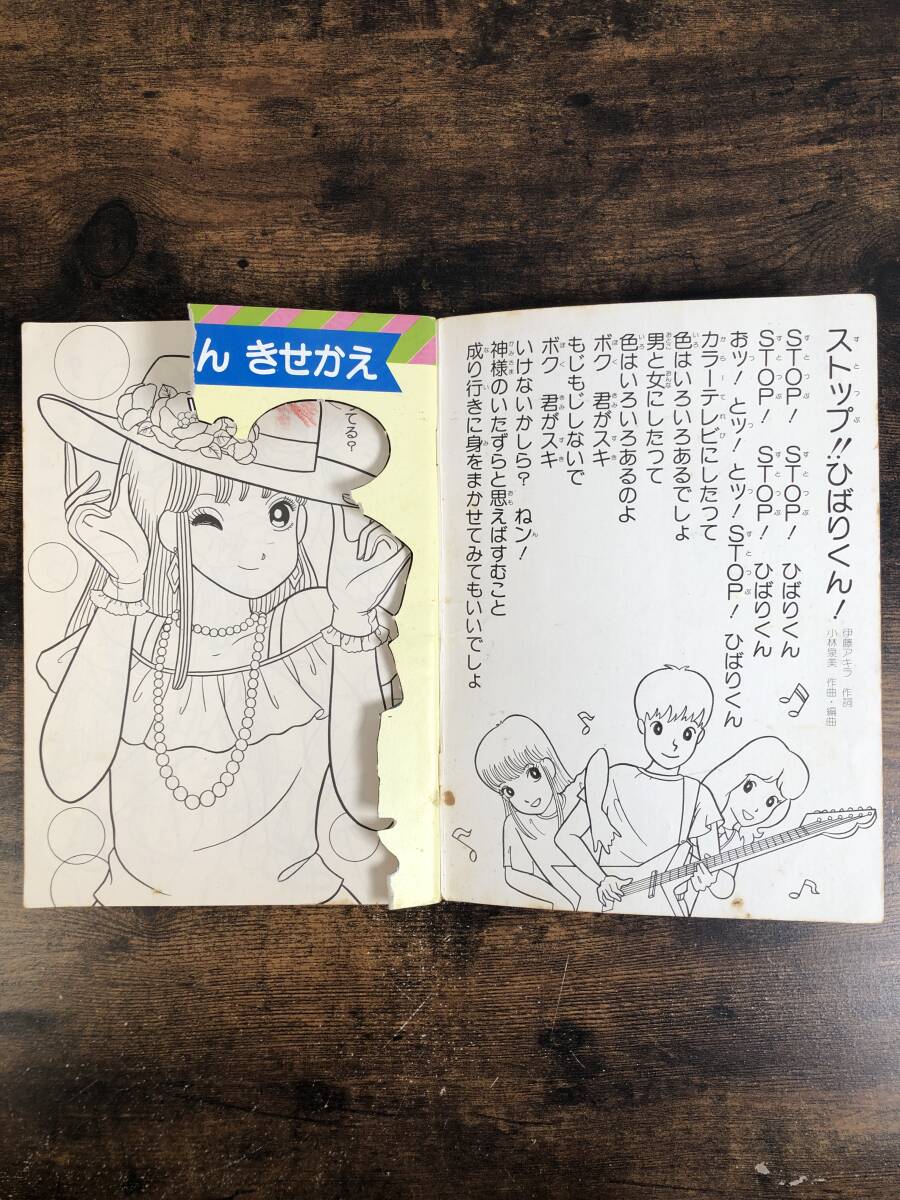 ん きせかえ
てる?
ストップ!!ひばりくん!
伊藤アキラ 作詞
小林泉美 作曲・編曲
STOP! STOP! ひばりくん
STOP! STOP! ひばりくん
おッ! とッ! とッ! STOP! ひばりくん
カラーテレビにしたって
色はいろいろあるでしょ
男と女にしたって
色はいろいろあるのよ
ボク 君がスキ
もじもじしないで
ボク 君がスキ
いけないかしら? ねン!
神様のいたずらと思えばすむこと
成り行きに身をまかせてみてもいいでしょ